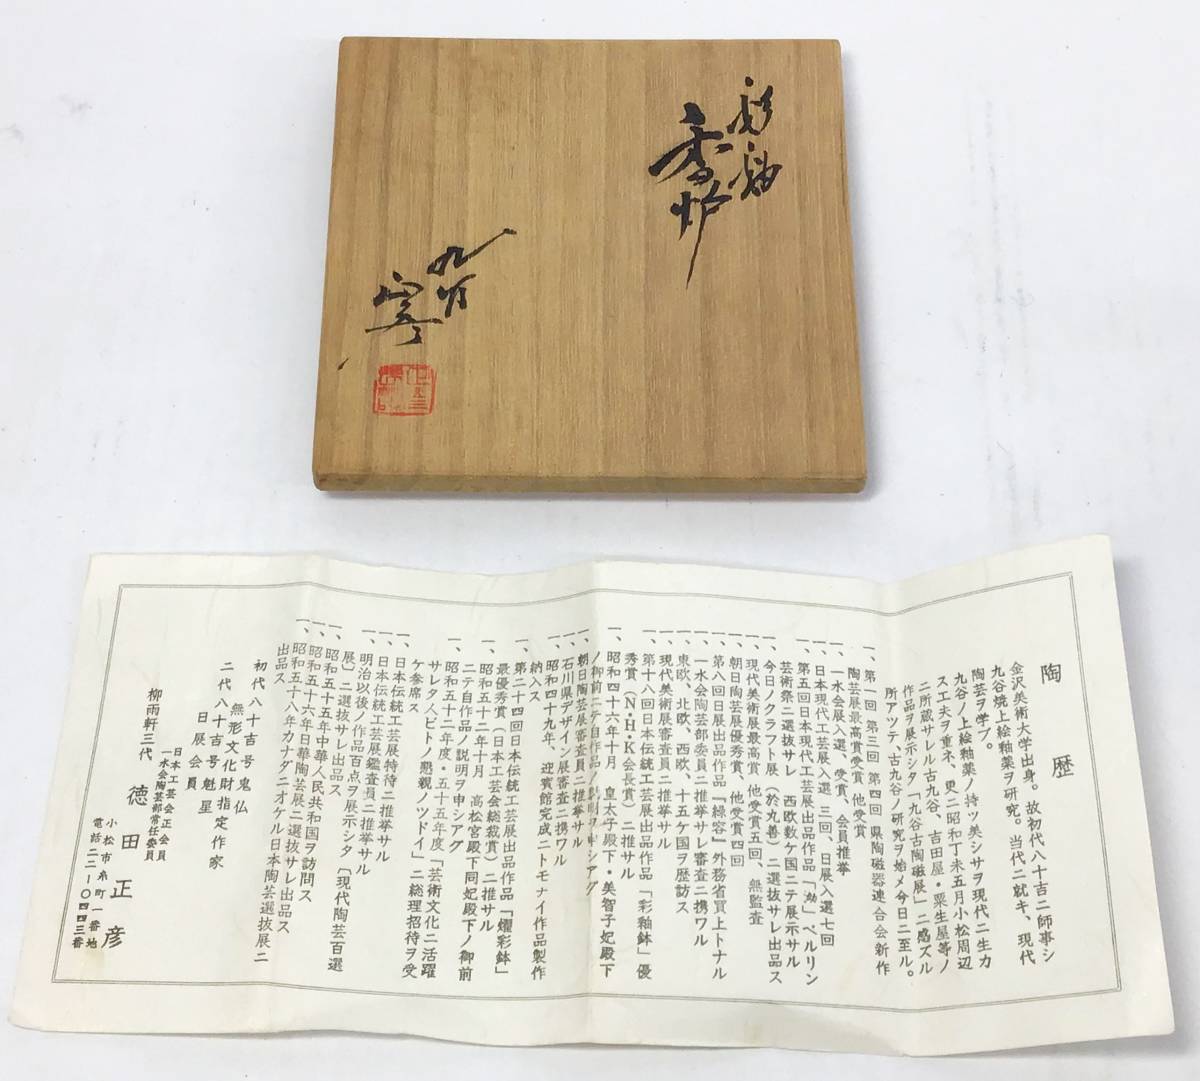 彩釉
香炉
九谷
陶歴
金沢美術大学出身。故初代八十吉ニ師事シ
九谷焼上絵釉薬ヲ研究。当代ニ就キ、現代
陶芸ヲ学ブ。
九谷ノ上絵釉薬ノ持ツ美シサヲ現代ニ生カ
スエ夫ヲ重ネ、更ニ昭和丁未五月小松周辺
ニ所蔵サレル古九谷、吉田屋・粟生屋等ノ
作品ヲ展示シタ「九谷古陶磁展」ニ感ズル
所アツテ、古九谷ノ研究ヲ始メ今日ニ至ル。
一、第一回 第三回 第四回 県陶磁器連合会新作
陶芸展最高賞受賞 他受賞
一、一水会展入選、受賞、会員推挙
一、日本現代工芸展入選 三回、日展入選七回
一、第五回日本現代工芸展出品作品「泑」ベルリン
芸術祭ニ選抜サレ 西欧数ケ国ニテ展示サル
一、今日ノクラフト展（於丸善）ニ選抜サレ出品ス
一、現代美術展最高賞 他受賞五回、無監査
一、朝日陶芸展優秀賞、他受賞四回
一、第八回日展出品作品『緑容』外務省買上トナル
一、一水会陶芸部委員ニ推挙サレ審査ニ携ワル
一、東欧、北欧、西欧、十五ケ国ヲ歴訪ス
一、現代美術展審査員ニ推挙サル
一、第十八回日本伝統工芸展出品作品「彩釉鉢」優
秀賞（N・H・K会長賞）ニ推サル
一、昭和四十六年十月 皇太子殿下・美智子妃殿下
ノ御前ニテ自作品ノ説明ヲ申シアグ
一、朝日陶芸展審査員ニ推挙サル
一、石川県デザイン展審査ニ携ワル
一、昭和四十九年、迎賓館完成ニトモナイ作品製作
納入ス
一、第二十四回日本伝統工芸展出品作品『燿彩鉢』
最優秀賞（日本工芸会総裁賞）ニ推サル
一、昭和五十二年十月 高松宮殿下同妃殿下ノ御前
ニテ自作品ノ説明ヲ申シアグ
一、昭和五十二年度・五十五年度「芸術文化ニ活躍
サレタ人ビトノ懇親ノツドイ」ニ総理招待ヲ受
ケ参席ス
一、日本伝統工芸展特待ニ推挙サル
一、日本伝統工芸展鑑査員ニ推挙サル
一、明治以後ノ作品百点ヲ展示シタ〔現代陶芸百選
展〕ニ選抜サレ出品ス
一、昭和五十五年中華人民共和国ヲ訪問ス
一、昭和五十六年日華陶芸展ニ選抜サレ出品ス
一、昭和五十八年カナダニオケル日本陶芸選抜展ニ
出品ス
初代八十吉号鬼仏
無形文化財指定作家
二代八十吉号魁星
日展会員
柳雨軒三代
日本工芸会正会員
一水会陶芸部常任委員
徳田正彦
小松市糸町一番地
電話二二-〇四四三番